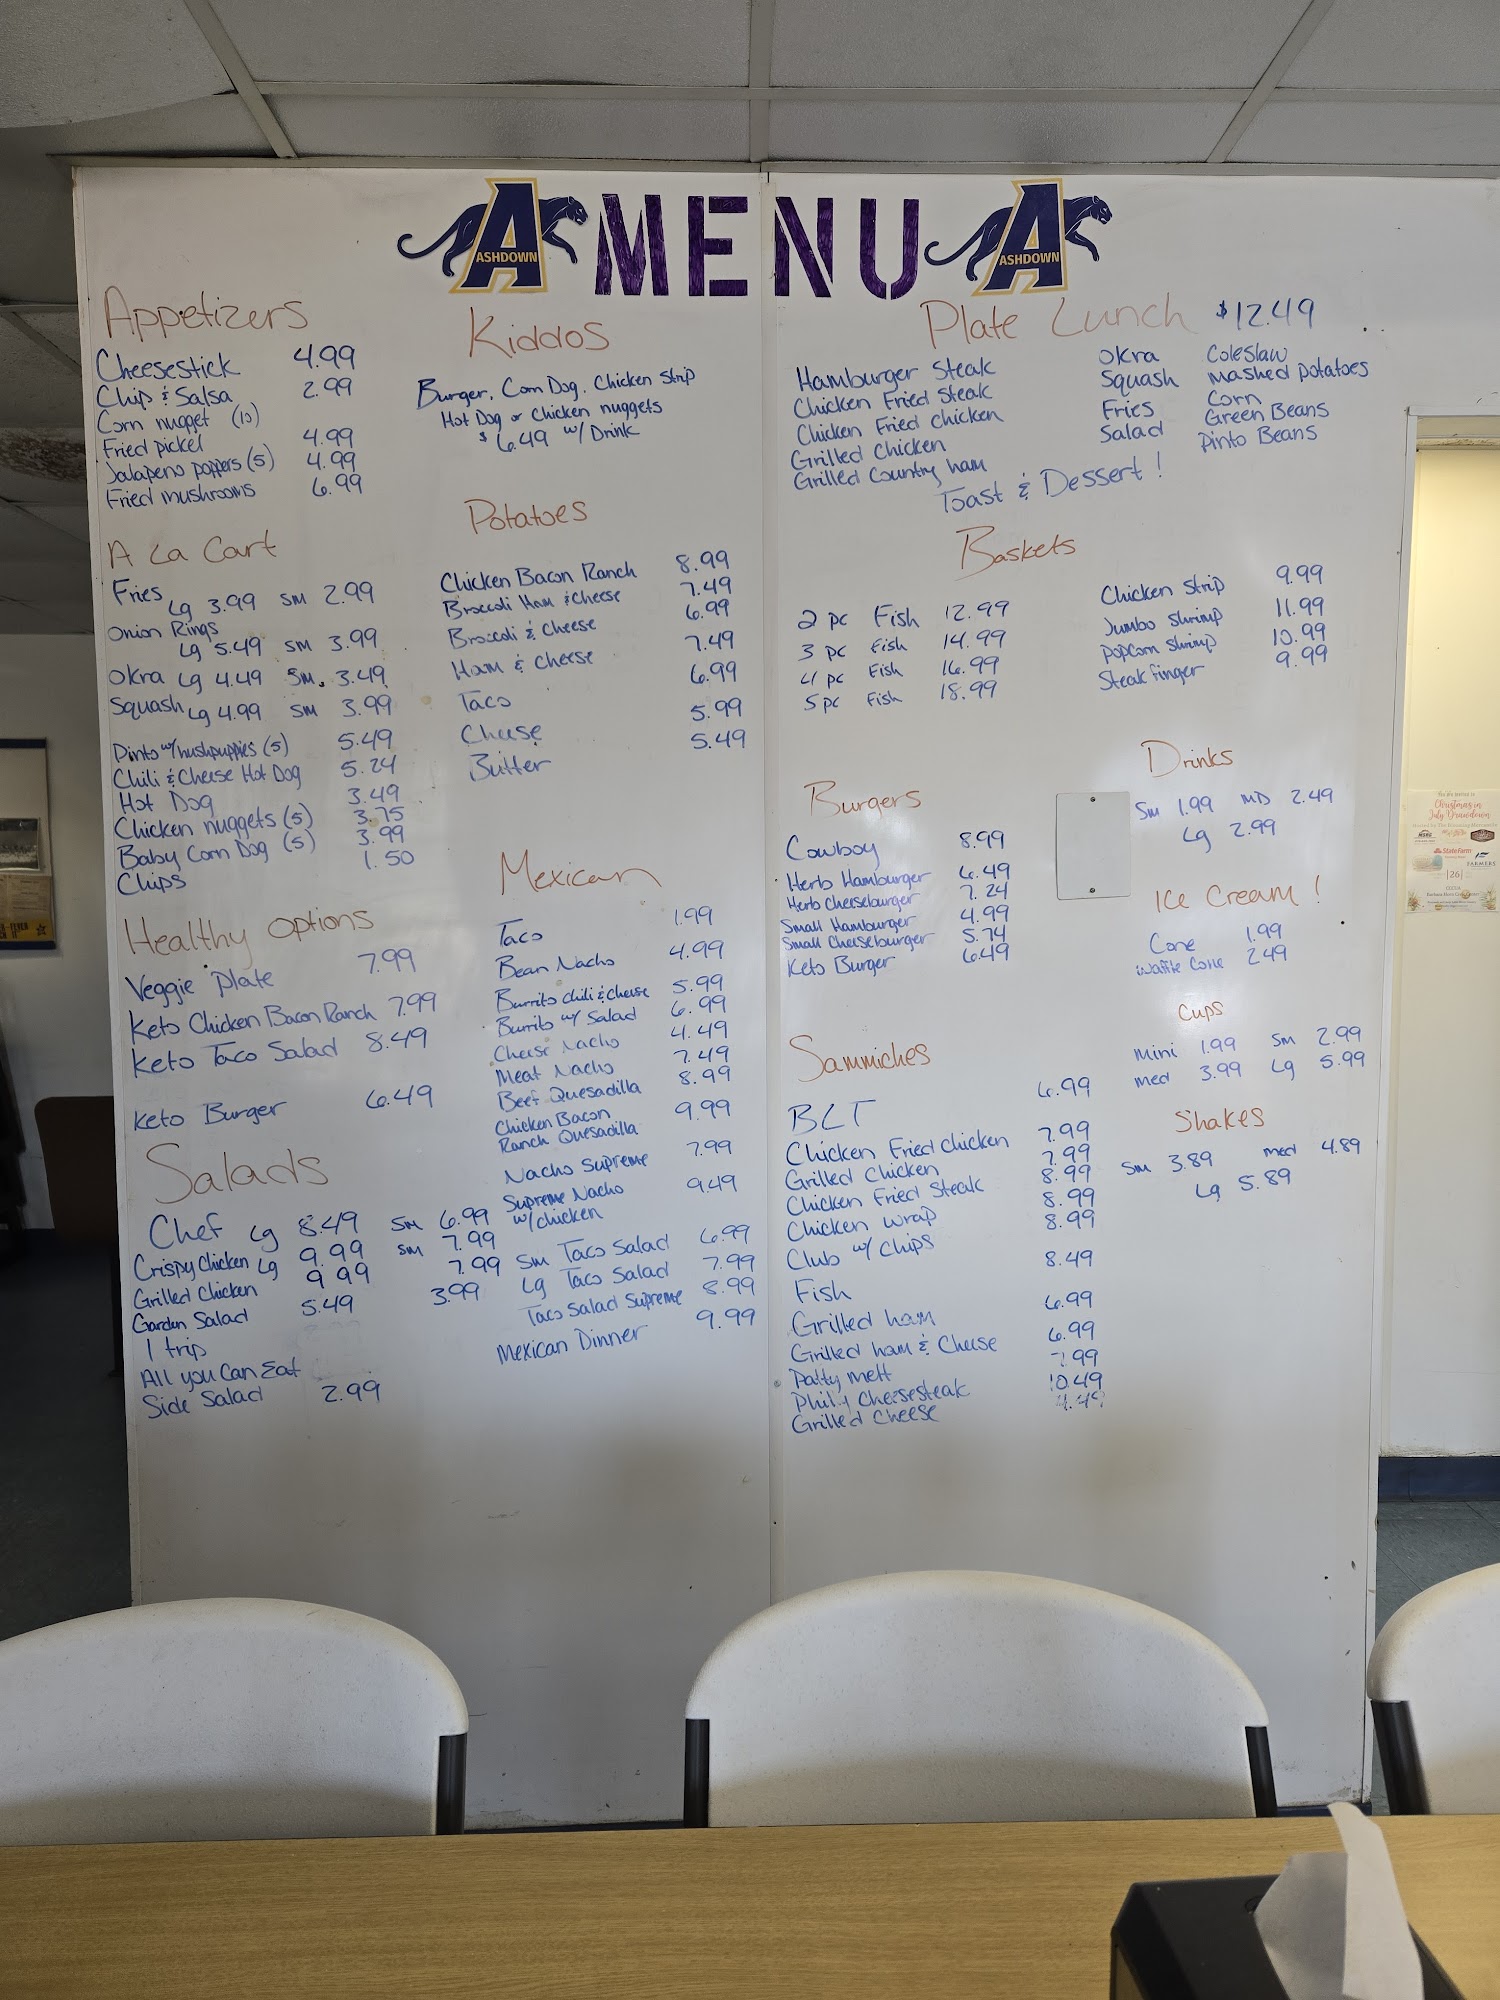 A ASHDOWN MENU A ASHDOWN
Appetizers
Cheesestick 4.99
Chip & Salsa 2.99
Corn nugget (10)
Fried pickel 4.99
Jalapeno poppers (5) 4.99
Fried mushrooms 6.99
A La Cart
Fries Lg 3.99 SM 2.99
Onion Rings
Lg 5.49 SM 3.99
Okra Lg 4.49 SM. 3.49
Squash Lg 4.99 SM 3.99
Pinto w/hushpuppies (5) 5.49
Chili & Cheese Hot Dog 5.24
Hot Dog 3.49
Chicken nuggets (5) 3.75
Baby Corn Dog (5) 3.99
Chips 1.50
Healthy Options
Veggie Plate 7.99
Keto Chicken Bacon Ranch 7.99
Keto Taco Salad 8.49
Keto Burger 6.49
Salads
Chef Lg 8.49 SM 6.99
Crispy Chicken Lg 9.99 SM 7.99
Grilled Chicken 9.99 7.99
Garden Salad 5.49 3.99
1 trip
All you Can Eat
Side Salad 2.99
Kiddos
Burger, Corn Dog, Chicken Strip
Hot Dog or Chicken nuggets
$ 6.49 w/ Drink
Potatoes
Chicken Bacon Ranch 8.99
Broccoli Ham & Cheese 7.49
Broccoli & Cheese 6.99
Ham & Cheese 7.49
Taco 6.99
Cheese 5.99
Butter 5.49
Mexican
Taco 1.99
Bean Nacho 4.99
Burrito Chili & Cheese 5.99
Burrito w/ Salad 6.99
Cheese Nacho 4.49
Meat Nacho 7.49
Beef Quesadilla 8.99
Chicken Bacon
Ranch Quesadilla 9.99
Nacho Supreme 7.99
Supreme Nacho
w/chicken 9.49
Sm Taco Salad 6.99
Lg Taco Salad 7.99
Taco Salad Supreme 8.99
Mexican Dinner 9.99
Plate Lunch $12.49
Hamburger Steak
Chicken Fried Steak
Chicken Fried Chicken
Grilled Chicken
Grilled Country ham
Okra Coleslaw
Squash Mashed potatoes
Fries Corn
Salad Green Beans
Pinto Beans
Toast & Dessert !
Baskets
2 pc Fish 12.99
3 pc Fish 14.99
4 pc Fish 16.99
5 pc Fish 18.99
Chicken Strip 9.99
Jumbo Shrimp 11.99
Popcorn Shrimp 10.99
Steak finger 9.99
Burgers
Cowboy 8.99
Herb Hamburger 6.49
Herb Cheeseburger 7.24
Small Hamburger 4.99
Small Cheeseburger 5.74
Keto Burger 6.49
Drinks
Sm 1.99 MD 2.49
Lg 2.99
Ice Cream !
Cone 1.99
Waffle Cone 2.49
Cups
Mini 1.99 Sm 2.99
med 3.99 Lg 5.99
Shakes
Sm 3.89 med 4.89
Lg 5.89
Sammiches
BLT 6.99
Chicken Fried Chicken 7.99
Grilled Chicken 7.99
Chicken Fried Steak 8.99
Chicken Wrap 8.99
Club w/ Chips 8.99
Fish 8.49
Grilled ham 6.99
Grilled ham & Cheese 6.99
Patty melt 7.99
Philly Cheesesteak 10.49
Grilled Cheese 4.49
Christmas in
July Drawdown
StateFarm
FARMERS
|26|